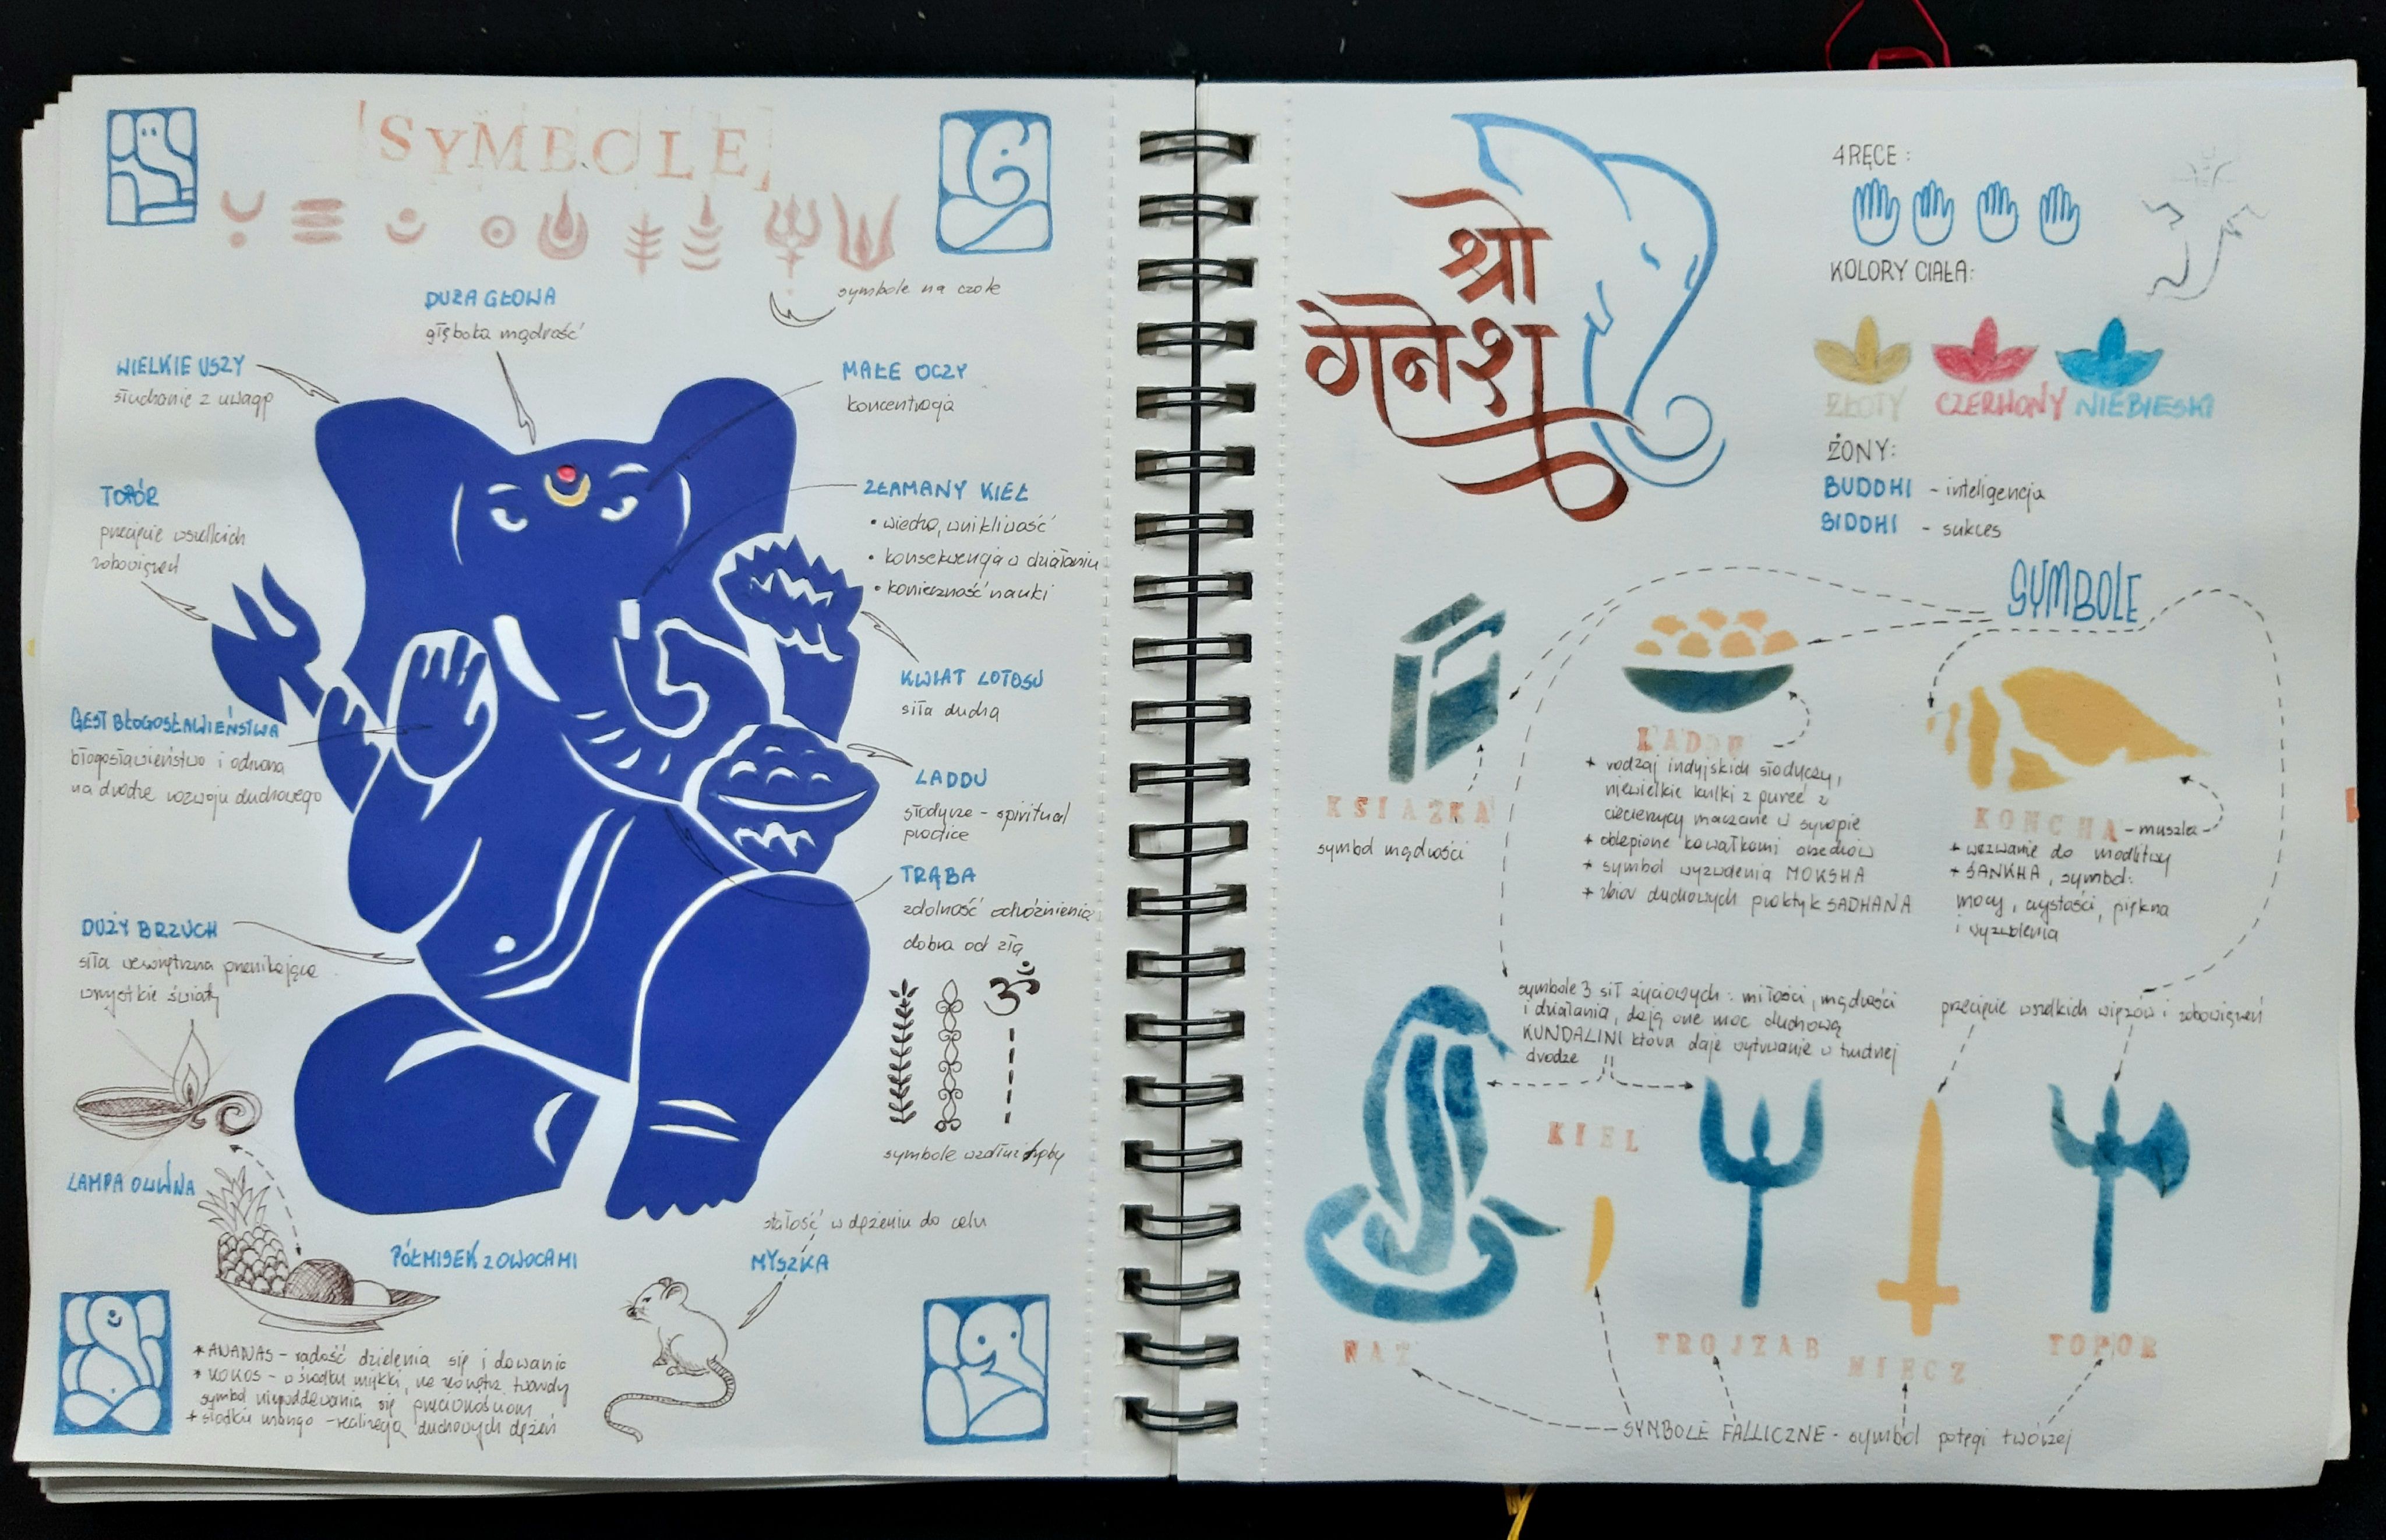 SYMBOLE
symbole na czole
DUŻA GŁOWA
głęboka mądrość
WIELKIE USZY
słuchanie z uwagą
MAŁE OCZY
koncentracja
TOPÓR
przecięcie wszelkich
zobowiązań
ZŁAMANY KIEŁ
• wiedza, wnikliwość
• konsekwencja w działaniu
• konieczność nauki
KWIAT LOTOSU
siła ducha
GEST BŁOGOSŁAWIEŃSTWA
błogosławieństwo i ochrona
na drodze rozwoju duchowego
LADDU
słodycze - spiritual
practice
TRĄBA
zdolność odróżnienia
dobra od zła
DUŻY BRZUCH
siła wewnętrzna przenikająca
wszystkie światy
ॐ
symbole wzdłuż trąby
LAMPA OLIWNA
PÓŁMISEK Z OWOCAMI
stałość w dążeniu do celu
MYSZKA
* ANANAS - radość dzielenia się i dawania
* KOKOS - w środku miękki, na zewnątrz twardy
symbol niepoddawania się przeciwnościom
* słodkie mango - realizacja duchowych dążeń
श्री
गनेश
4 RĘCE:
KOLORY CIAŁA:
ZŁOTY CZERWONY NIEBIESKI
ŻONY:
BUDDHI - inteligencja
SIDDHI - sukces
SYMBOLE
KSIAZKA
symbol mądrości
LADDU
+ rodzaj indyjskich słodyczy,
niewielkie kulki z pureé z
ciecierzycy maczane w syropie
+ oblepione kawałkami orzechów
+ symbol wyzwolenia MOKSHA
+ zbiór duchowych praktyk SADHANA
KONCHA - muszla
+ wezwanie do modlitwy
+ ŚANKHA, symbol:
mocy, czystości, piękna
i wyzwolenia
symbole 3 sił życiowych: miłości, mądrości
i działania, dają one moc duchową
KUNDALINI która daje wytrwanie w trudnej
drodze
przecięcie wszelkich więzów i zobowiązań
KIEL
TROJZAB
MIECZ
TOPOR
SYMBOLE FALLICZNE - symbol potęgi twórczej